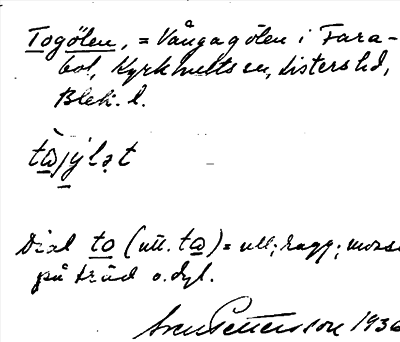 Togölen, = Vångagölen i Fara-
bol, Kyrkhults sn, Listers hd,
Blek. l.
tàjýlət
Dial to (utt. ta) = ull; ragg; mossa
på träd o. dyl.
Sven Pettersson 1936